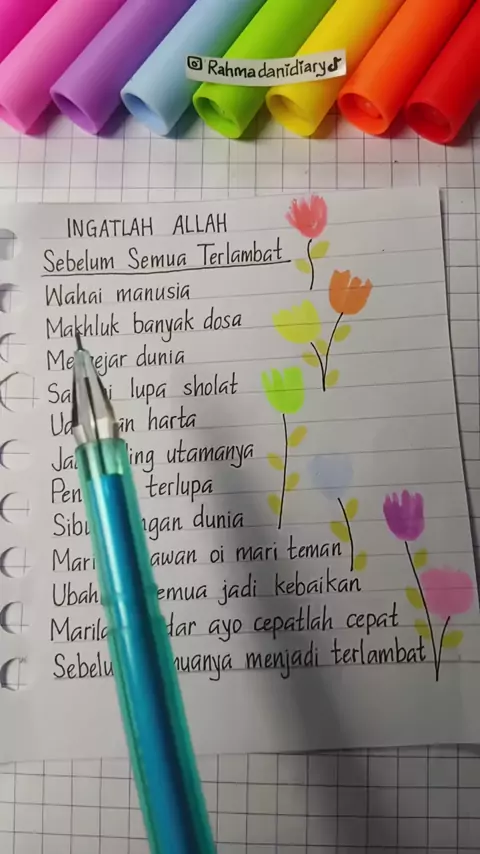 Rahmadanidiary
INGATLAH ALLAH
Sebelum Semua Terlambat
Wahai manusia
Makhluk banyak dosa
Mengejar dunia
lupa sholat
harta
utamanya
terlupa
dunia
Mari oi mari teman
semua jadi kebaikan
ayo cepatlah cepat
Sebelum semuanya menjadi terlambat